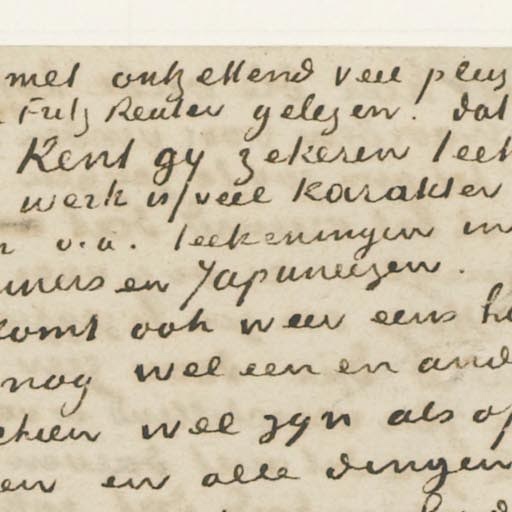 met ontzettend veel pleiz
Fritz Reuter gelezen. dat
Kent gy zekeren teek
werk is/veel karakter
n v.a. teekeningen in
iners en Japaneezen.
komt ook weer eens h
nog wel een en and
chien wel zyn als op
en en alle dingen